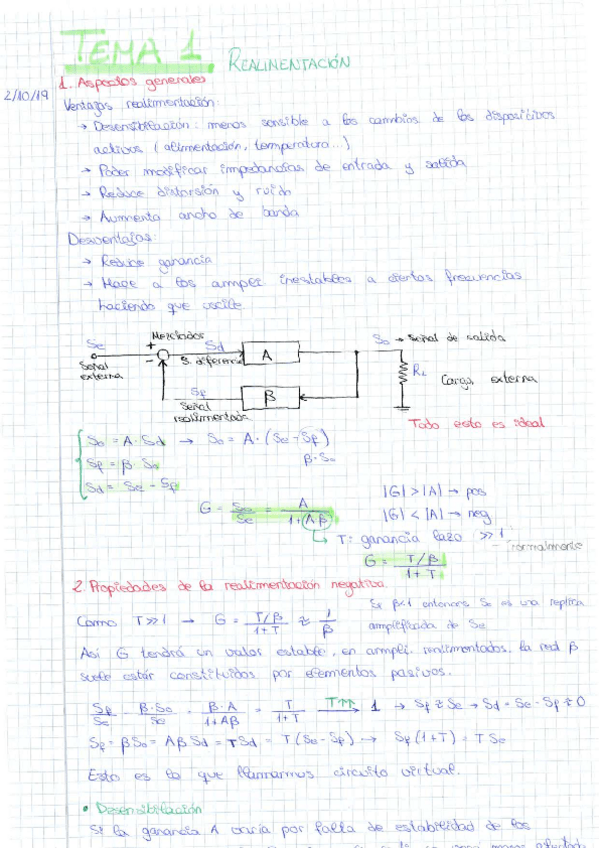 TEMA 1. REALIMENTACIÓN
1. Aspectos generales
2/10/19
Ventajas realimentación:
→ Desensibilización: menos sensible a los cambios de los dispositivos
activos (alimentación, temperatura...)
→ Poder modificar impedancias de entrada y salida
→ Reduce distorsión y ruido
→ Aumenta ancho de banda
Desventajas:
→ Reduce ganancia
→ Hace a los amplif. inestables a ciertas frecuencias
haciendo que oscile
Se
Señal
externa
Mezclador
+
-
Sd
S. diferencia
A
So → Señal de salida
RL
Carga externa
Sf
Señal
realimentada
β
Todo esto es ideal
So = A · Sd → So = A · (Se - Sf)
β·So
Sf = β · So
Sd = Se - Sf
G = So/Se = A/(1+Aβ)
|G| > |A| → pos
|G| < |A| → neg
T: ganancia lazo >> 1
normalmente
G = T/β / 1+T
2. Propiedades de la realimentación negativa.
Como T>>1 → G = T/β / 1+T ≈ 1/β
Si β<1 entonces So es una replica
amplificada de Se
Así G tendrá un valor estable, en amplif. realimentados. la red β
suele estár constituidos por elementos pasivos.
Sf/Se = β·So/Se = β·A/1+Aβ = T/1+T T↑↑ → 1 → Sf ≈ Se → Sd = Se - Sf ≈ 0
Sf = βSo = Aβ Sd = TSd = T(Se - Sf) → Sf(1+T) = TSe
Esto es lo que llamamos circuito virtual.
• Desensibilización
Si la ganancia A varía por falta de estabilidad de los